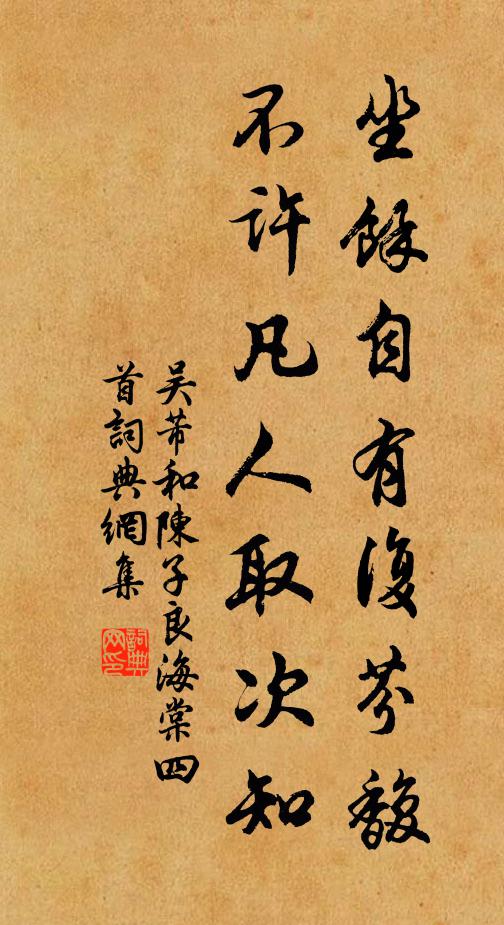 坐餘自有復芬馥
不許凡人取次知
吳芾和陳子良海棠四
首詞典網集
詞典
网印